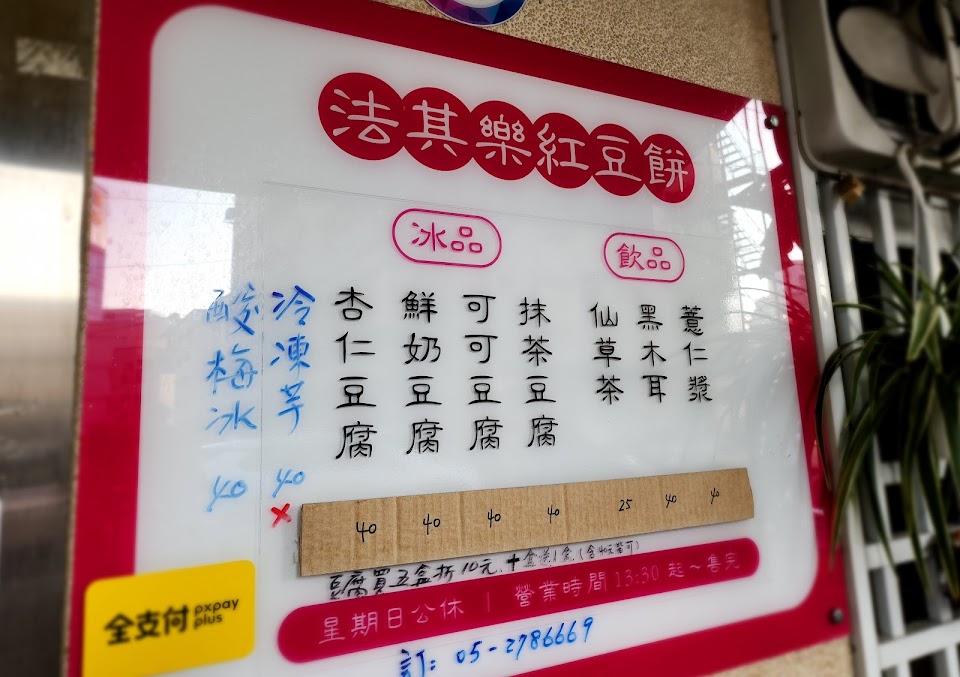 法其樂紅豆餅
冰品
飲品
薏仁漿
黑木耳
仙草茶
抹茶豆腐
可可豆腐
鮮奶豆腐
杏仁豆腐
冷凍芋 40
×
酸梅冰 40
40 40 40 40 25 40 40
豆腐買五盒折10元、十盒送1盒(含40元皆可)
星期日公休 | 營業時間 13:30 起~售完
訂: 05-2786669
全支付 pxpay plus